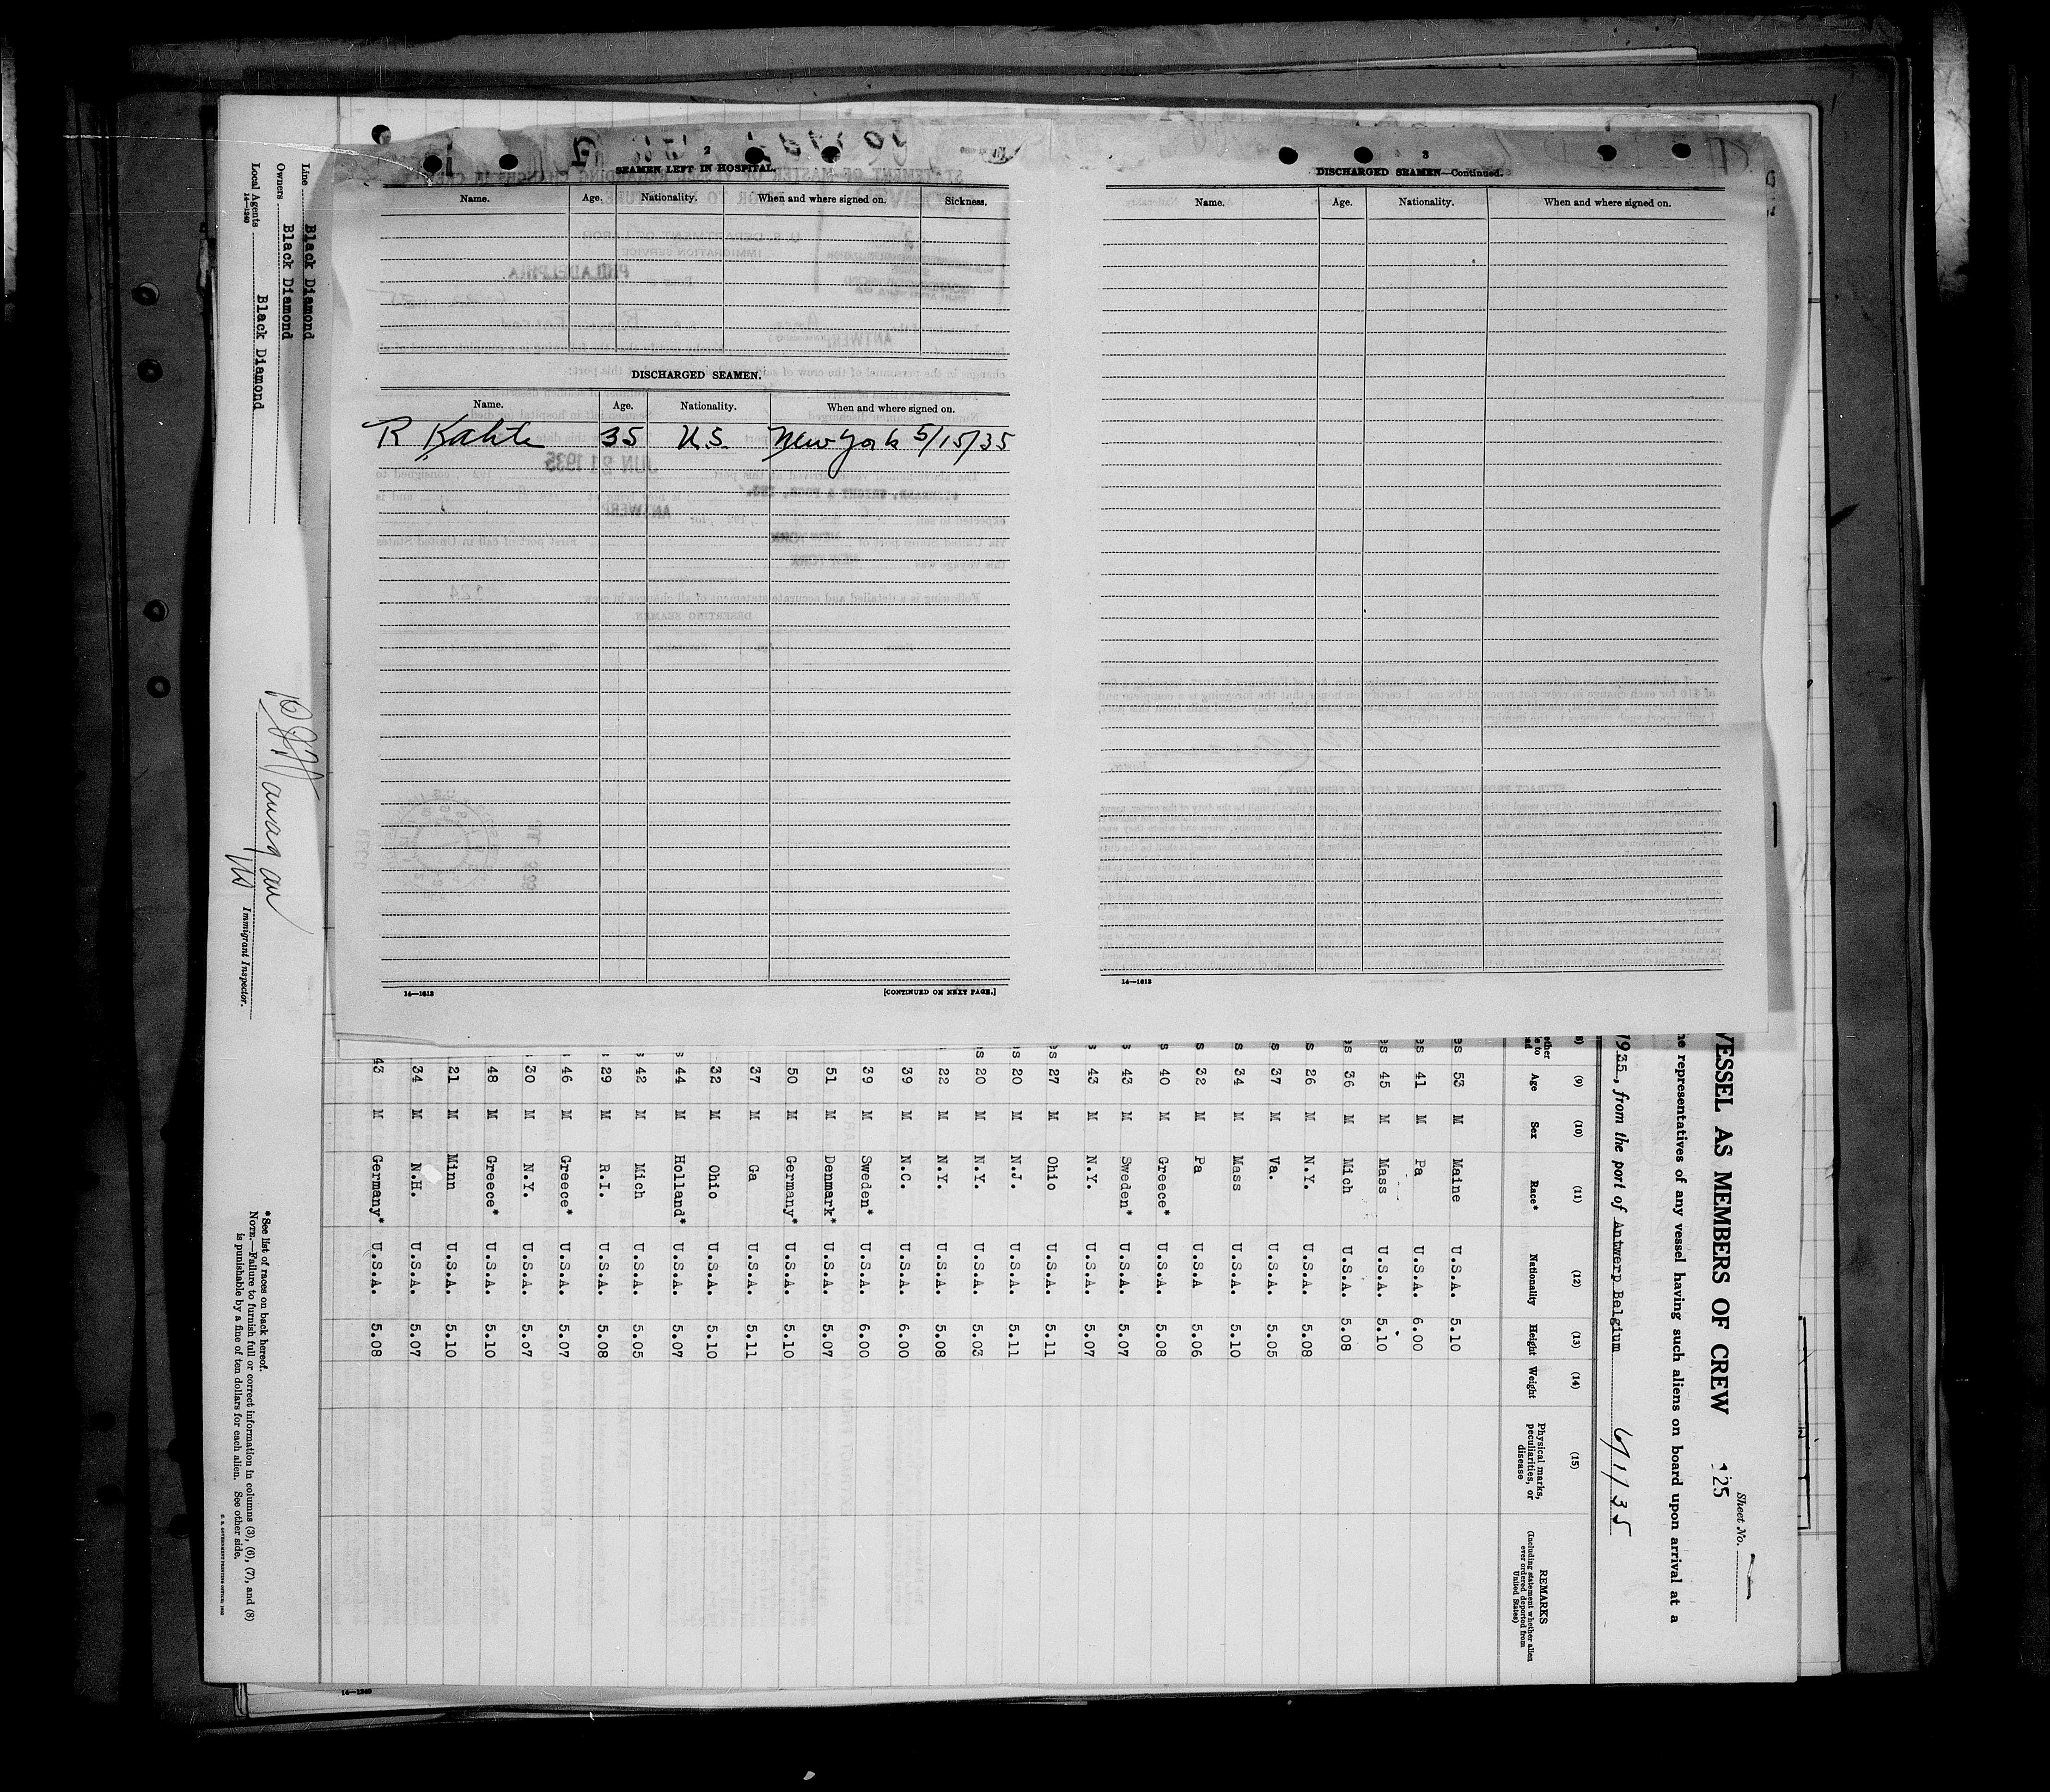 2
SEAMEN LEFT IN HOSPITAL.
Name. Age. Nationality. When and where signed on. Sickness.
DISCHARGED SEAMEN.
Name. Age. Nationality. When and where signed on.
R 35 U.S. New York 5/15/35
14—1613 [CONTINUED ON NEXT PAGE.]
3
DISCHARGED SEAMEN—Continued.
Name. Age. Nationality. When and where signed on.
14—1613
VESSEL AS MEMBERS OF CREW 125
Sheet No.
representatives of any vessel having such aliens on board upon arrival at a
1935, from the port of Antwerp Belgium 6/1/35
(9) (10) (11) (12) (13) (14) (15)
Age Sex Race* Nationality Height Weight Physical marks, peculiarities, or disease REMARKS
(Including statement whether alien ever ordered deported from United States)
53 M Maine U.S.A. 5.10
41 M Pa U.S.A. 6.00
45 M Mass U.S.A. 5.10
36 M Mich U.S.A. 5.08
26 M N.Y. U.S.A. 5.08
37 M Va. U.S.A. 5.05
34 M Mass U.S.A. 5.10
32 M Pa U.S.A 5.06
40 M Greece* U.S.A. 5.08
43 M Sweden* U.S.A. 5.07
43 M N.Y. U.S.A. 5.07
27 M Ohio U.S.A. 5.11
20 M N.J. U.S.A. 5.11
20 M N.Y. U.S.A. 5.03
22 M N.Y. U.S.A. 5.08
39 M N.C. U.S.A. 6.00
39 M Sweden* U.S.A. 6.00
51 M Denmark* U.S.A. 5.07
50 M Germany* U.S.A. 5.10
37 M Ga U.S.A. 5.11
32 M Ohio U.S.A. 5.10
44 M Holland* U.S.A. 5.07
42 M Mich U.S.A. 5.05
29 M R.I. U.S.A. 5.08
46 M Greece* U.S.A. 5.07
30 M N.Y. U.S.A. 5.07
48 M Greece* U.S.A. 5.10
21 M Minn U.S.A. 5.10
34 M N.H. U.S.A. 5.07
43 M Germany* U.S.A. 5.08
Line Black Diamond
Owners Black Diamond
Local Agents Black Diamond
14—1240
Immigrant Inspector.
*See list of races on back hereof.
NOTE.—Failure to furnish full or correct information in columns (3), (6), (7), and (8)
is punishable by a fine of ten dollars for each alien. See other side.
14—1240